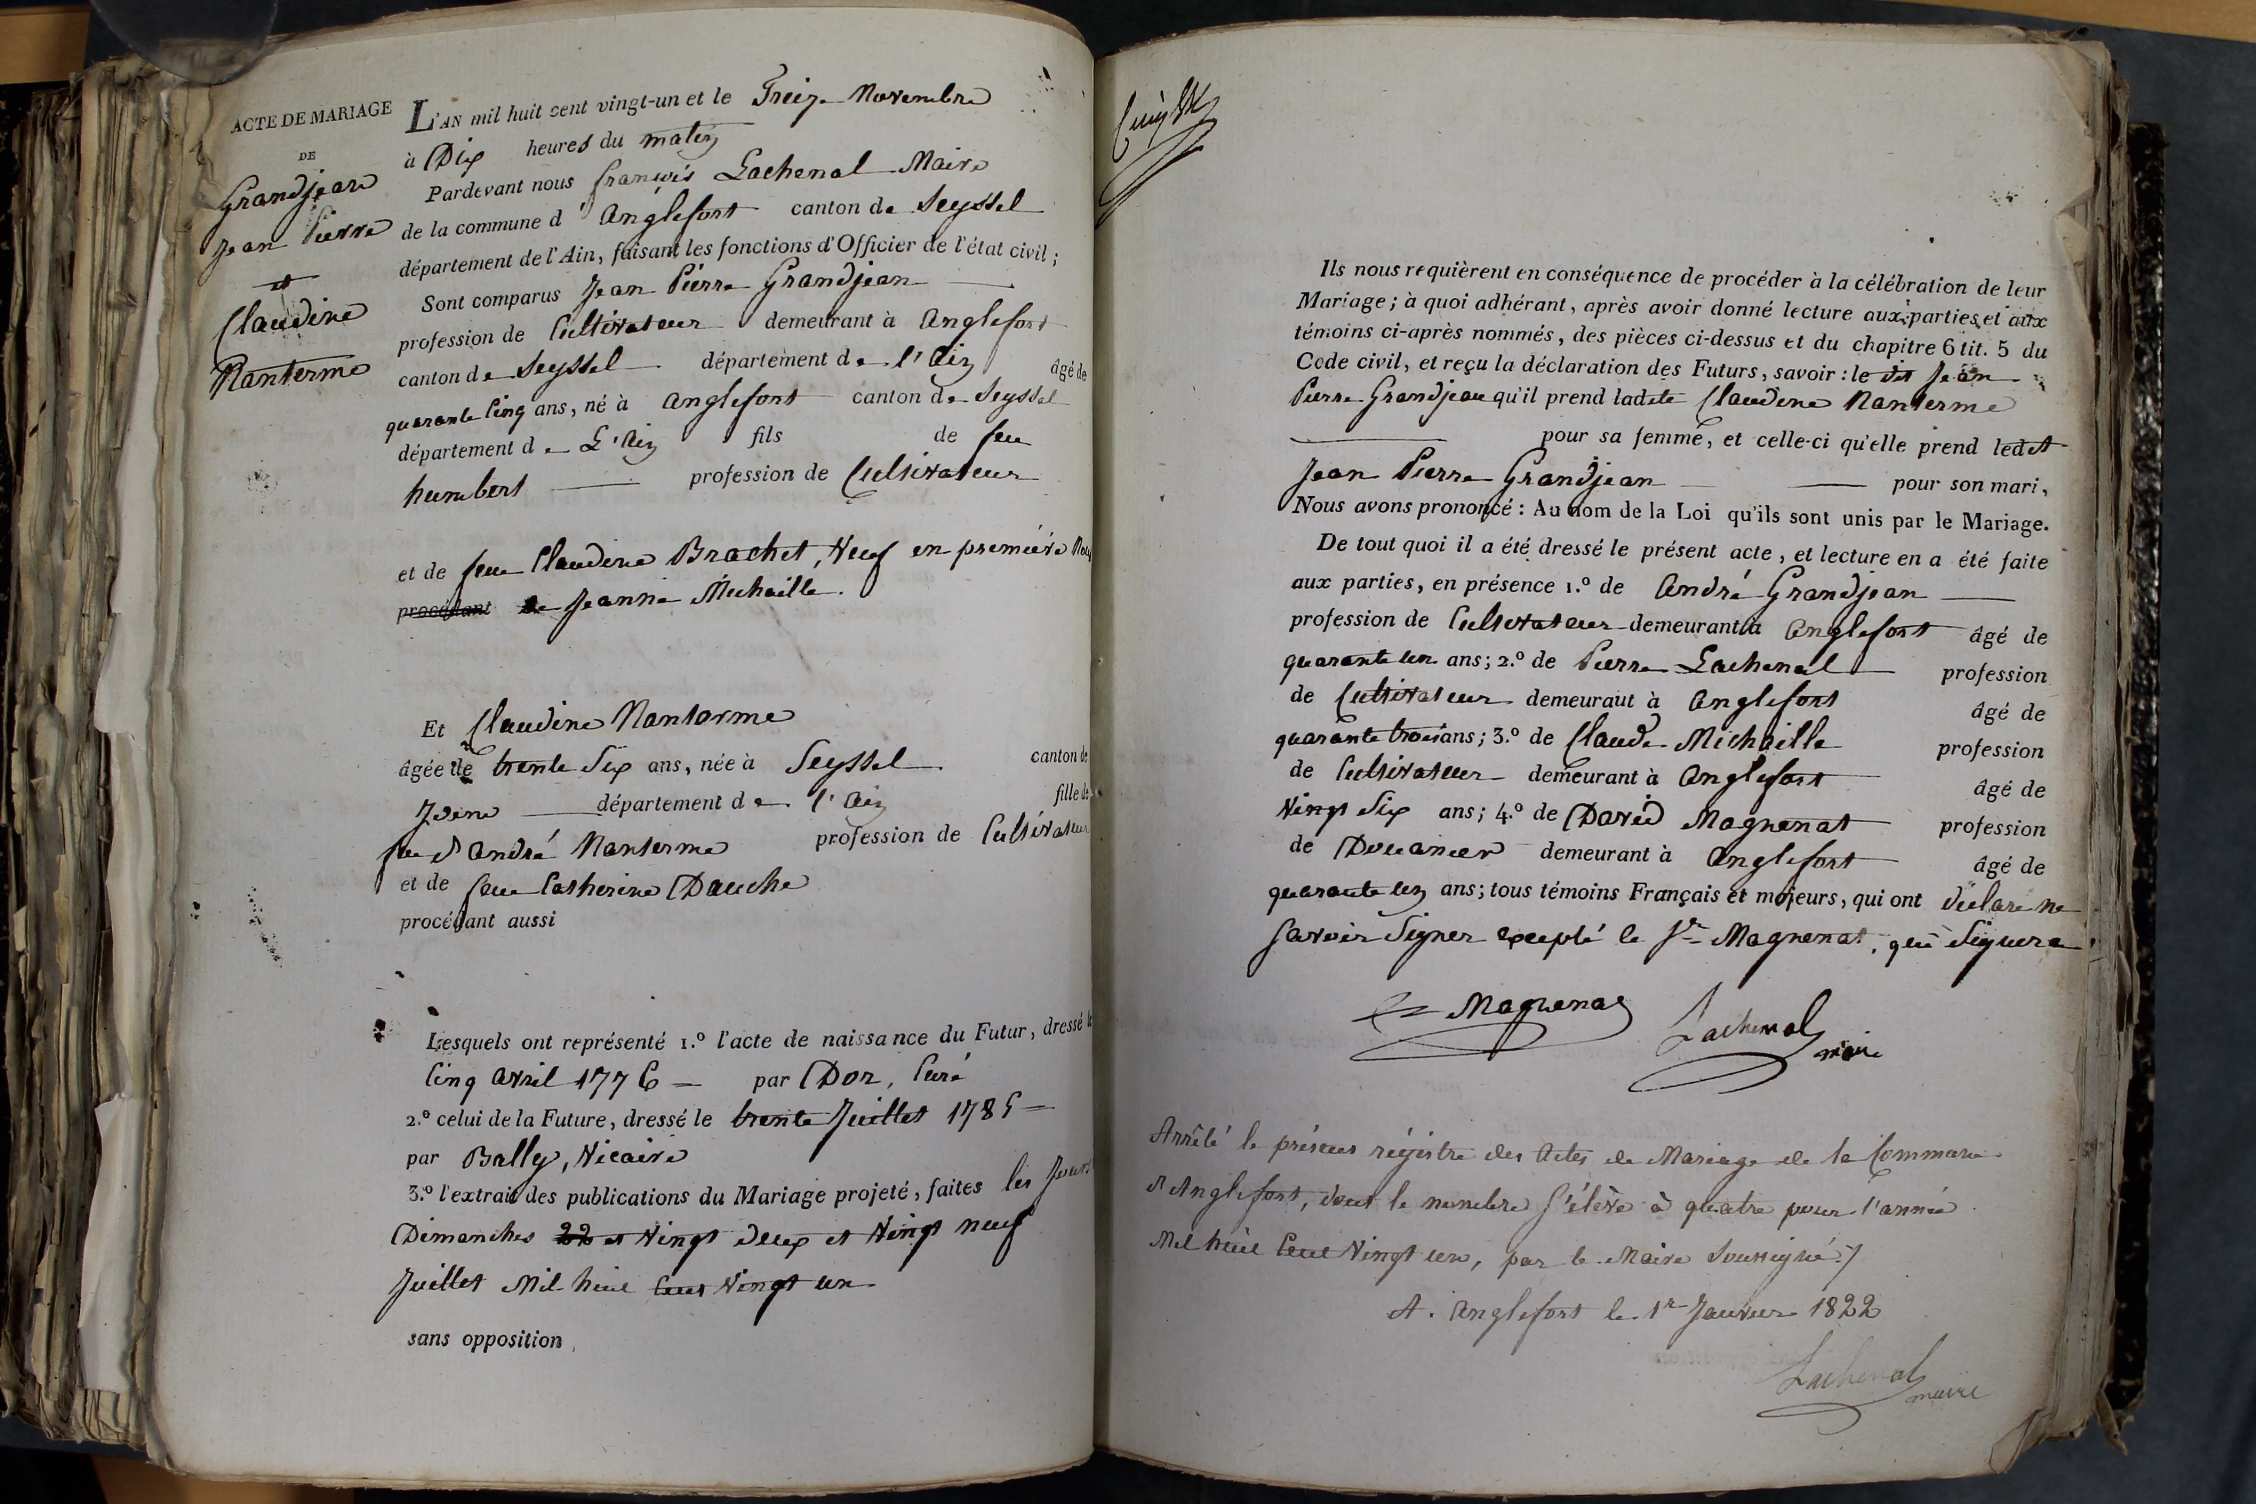 ACTE DE MARIAGE
DE
Grandjean
Jean Pierre
et
Claudine
Nanterme
L'AN mil huit cent vingt-un et le Treize Novembre
à Dix heures du matin
Pardevant nous françois Lachenal Maire
de la commune d'Anglefort canton de Seyssel
département de l'Ain, faisant les fonctions d'Officier de l'état civil;
Sont comparus Jean Pierre Grandjean
profession de Cultivateur demeurant à Anglefort
canton de Seyssel département de l'Ain âgé de
quarante Cinq ans, né à Anglefort canton de Seyssel
département de L'Ain fils de feu
humbert profession de Cultivateur
et de feue Claudine Brachet, Veuf en première
procédant de Jeanne Michaille.
Et Claudine Nanterme
âgée de trente Six ans, née à Seyssel canton de
Idem département de l'Ain fille de
feu d'andré Nanterme profession de Cultivateur
et de feue Catherine Dauche
procédant aussi
Lesquels ont représenté 1.º l'acte de naissance du Futur, dressé le
Cinq Avril 1776 par Dor, Curé
2.º celui de la Future, dressé le trente Juillet 1785
par Bally, Vicaire
3.º l'extrait des publications du Mariage projeté, faites les Jours
Dimanches 22 et Vingt deux et Vingt neuf
Juillet Mil huit Cent Vingt un
sans opposition
Ils nous requièrent en conséquence de procéder à la célébration de leur
Mariage; à quoi adhérant, après avoir donné lecture aux parties et aux
témoins ci-après nommés, des pièces ci-dessus et du chapitre 6 tit. 5 du
Code civil, et reçu la déclaration des Futurs, savoir: le dit Jean
Pierre Grandjean qu'il prend ladite Claudine Nanterme
pour sa femme, et celle-ci qu'elle prend ledit
Jean Pierre Grandjean pour son mari,
Nous avons prononcé: Au nom de la Loi qu'ils sont unis par le Mariage.
De tout quoi il a été dressé le présent acte, et lecture en a été faite
aux parties, en présence 1.º de André Grandjean
profession de Cultivateur demeurant à Anglefort âgé de
quarante un ans; 2.º de Pierre Lachenal profession
de Cultivateur demeurant à Anglefort âgé de
quarante trois ans; 3.º de Claude Michaille profession
de Cultivateur demeurant à Anglefort âgé de
Vingt Six ans; 4.º de David Magnenat profession
de Douanier demeurant à Anglefort âgé de
quarante un ans; tous témoins Français et majeurs, qui ont déclaré ne
Savoir Signer excepté le Sr Magnenat, qui Signera
Magnenat
Lachenal
maire
Arrêté le présent régistre des Actes de Mariage de la Commune
d'Anglefort, dont le nombre s'élève à quatre pour l'année
Mil huit Cent Vingt un, par le Maire Soussigné
A Anglefort le 1er Janvier 1822
Lachenal
maire